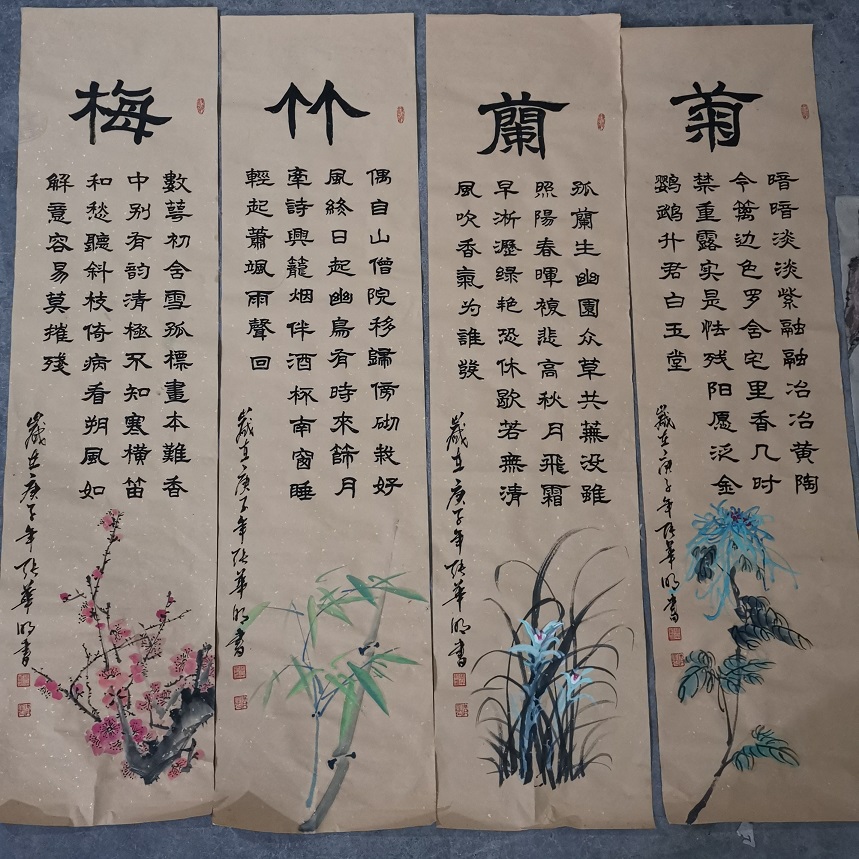 梅
數萼初含雪孤標畫本難香
中别有韵清極不知寒横笛
和愁聽斜枝倚病看朔風如
解意容易莫摧殘
歲在庚子年張華明書
竹
偶自山僧院移歸傍砌栽好
風終日起幽鳥有時來篩月
牽詩興籠烟伴酒杯南窗睡
輕起蕭颯雨聲回
歲在庚子年張華明書
蘭
孤蘭生幽園众草共蕪没雖
照陽春暉複悲高秋月飛霜
早淅瀝绿艳恐休歇若無清
風吹香氣为誰發
歲在庚子年張華明書
菊
暗暗淡淡紫融融冶冶黄陶
令篱边色罗含宅里香几时
禁重露实是怯残阳愿泛金
鹦鹉升君白玉堂
歲在庚子年張華明書